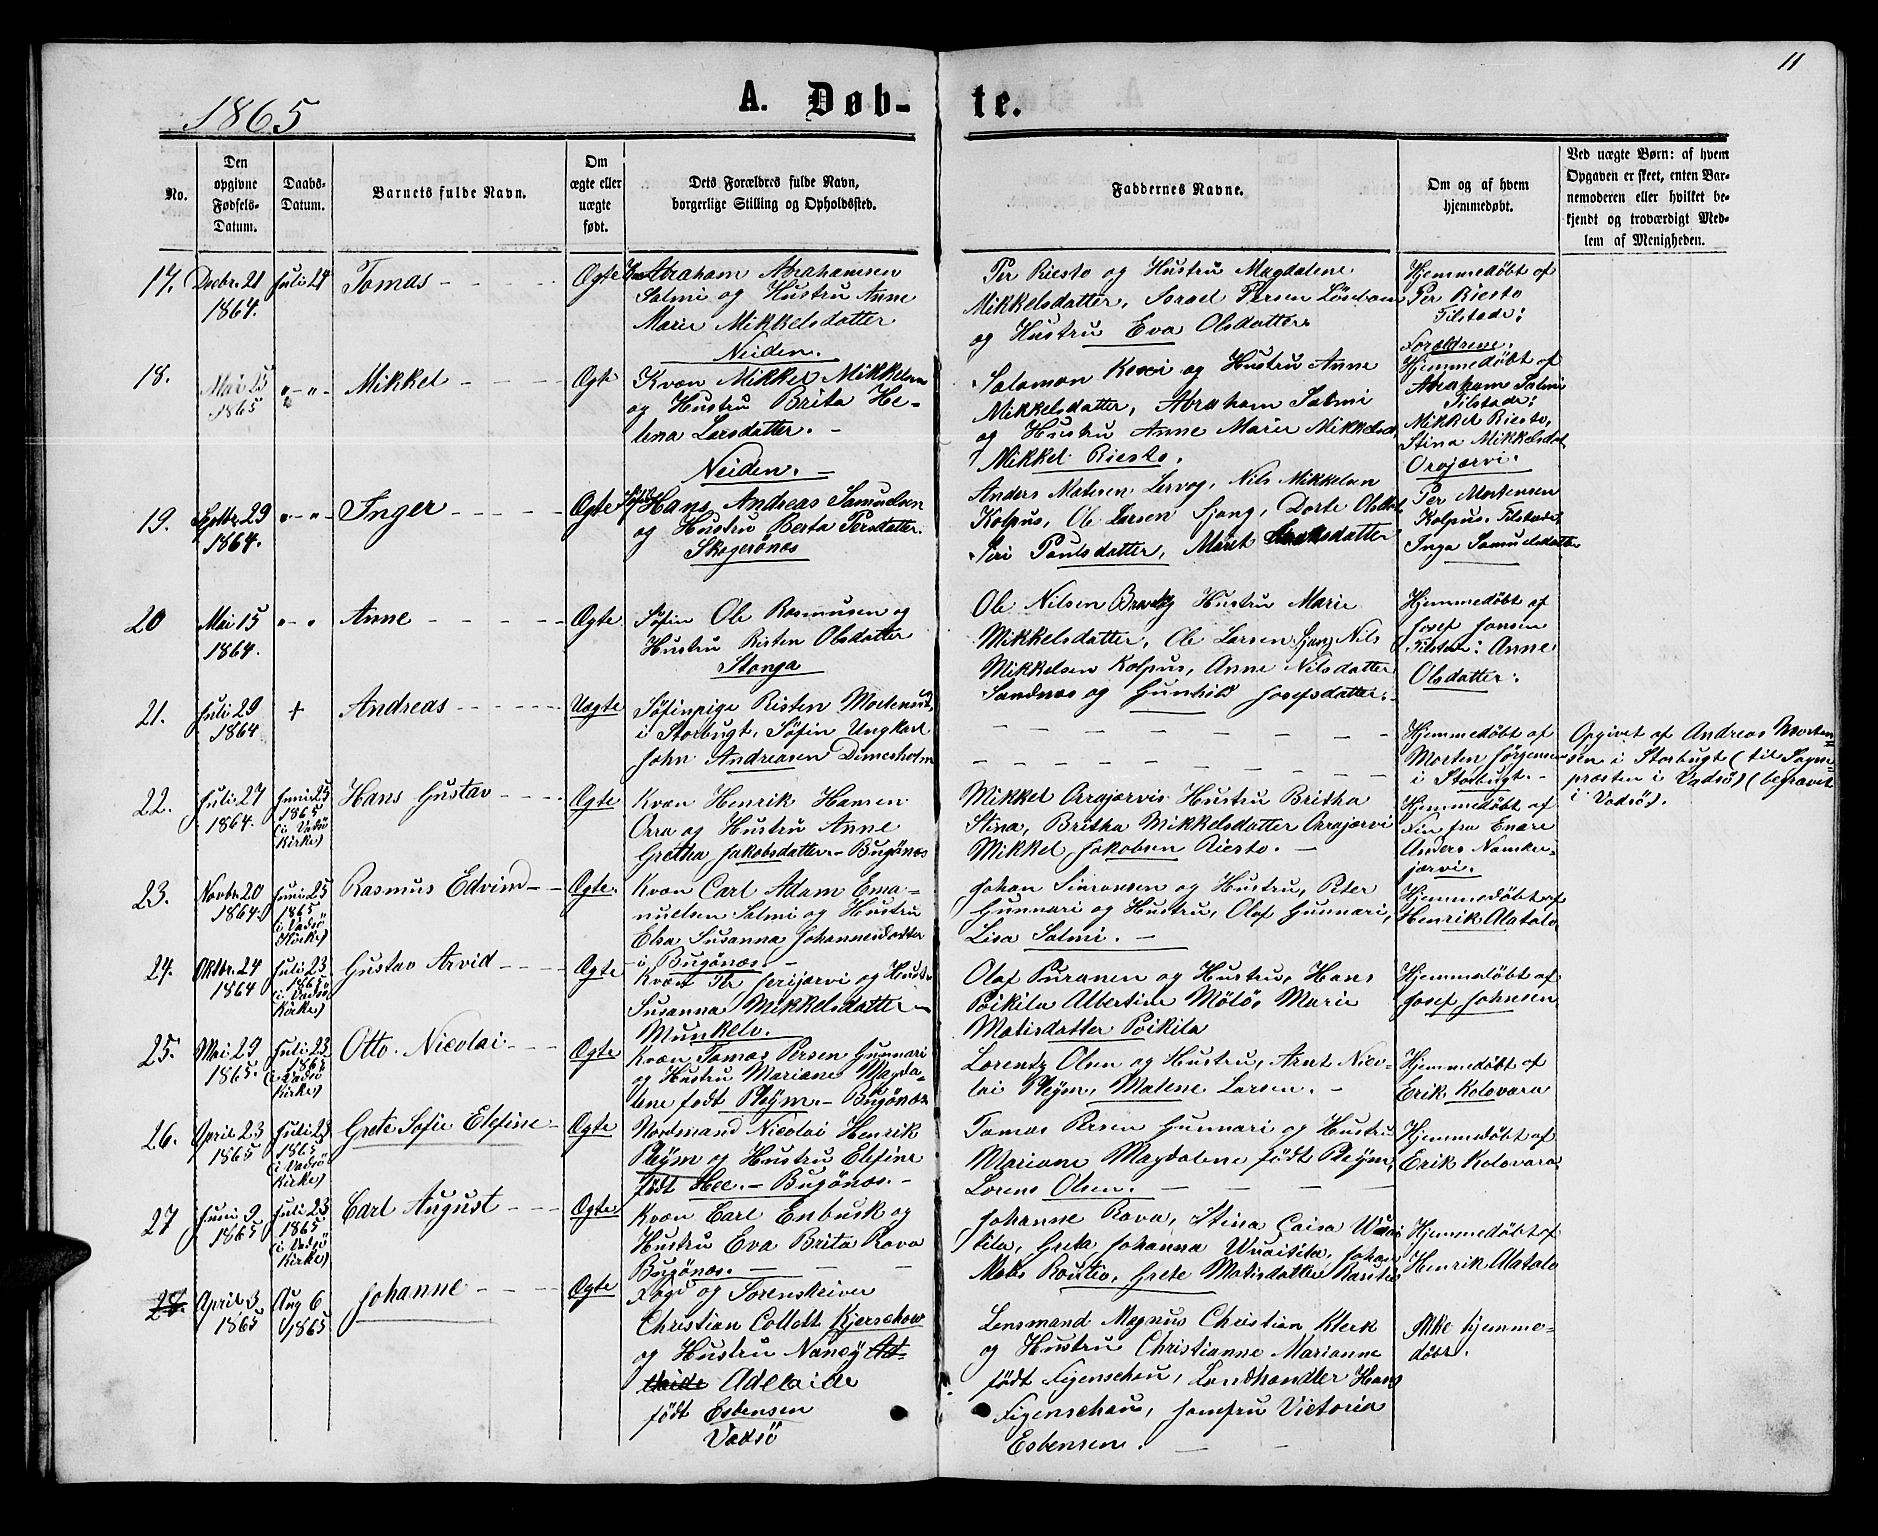 11
1865
A. Døb-
te.
No.
Den
opgivne
Fødsels-
Datum.
Daabs-
Datum.
Barnets fulde Navn.
Om
ægte eller
uægte
født.
Dets Forældres fulde Navn,
borgerlige Stilling og Opholdssted.
Faddernes Navne.
Om og af hvem
hjemmedøbt.
Ved uægte Børn: af hvem
Opgaven er skeet, enten Bar-
nemoderen eller hvilket be-
kjendt og troværdigt Med-
lem af Menigheden.
17.
Decbr. 21
1864.
Juli 24
Tomas
Ægte
Abraham Abrahamsen
Salmi og Hustru Anne
Marie Mikkelsdatter
Neiden.
Per Riesto og Hustru Magdalene
Mikkelsdatter, Israel Persen
og Hustru Eva Olsdatter
Hjemmedøbt af
Per Riesto
Tilstede:
Forældrene.
18.
Mai 25
1865
" - " -
Mikkel
Ægte
Kvæn Mikkel Mikkelsen
og Hustru Brita He-
lena Larsdatter. -
Neiden. -
Salomon Koxi og Hustru Anne
Mikkelsdatter, Abraham Salmi
og Hustru Anne Marie Mikkelsd.
Mikkel Riesto.
Hjemmedøbt af
Abraham Salmi
Tilstede:
Mikkel Riesto,
Stina Mikkelsdat
Orajærvi.
19.
Septbr. 29
1864.
" - " -
Inger
Ægte
Søfin Hans Andreas Samuelsen
og Hustru Berta Persdatter.
Skogerönæs
Anders Matisen Lervog, Nils Mikkelsen
Kolpus, Ole Larsen Sjang, Dorte Olsdat
Siri Poulsdatter, Maret
Per Mortensen
Kolpus. Tilstede:
Inga Samuelsdatter
20
Mai 15
1864.
" - "
Anne
Ægte
Søfin Ole Rasmusen og
Hustru Risten Olsdatter
Stonga
Ole Nilsen Hustru Marie
Mikkelsdatter, Ole Larsen Sjang Nils
Mikkelsen Kolpus, Anne Nilsdatter
Sandnæs og Gunhild Josefsdatter.
Hjemmedøbt af
Josef Jonsen
Tilstede: Anne
Olsdatter.
21.
Juli 29
1864
+
Andreas
Uægte
Søfinpige Risten Mortensd.
i Storbugt, Søfin Ungkarl
John Andreasen Dimesholm
Hjemmedøbt af
Morten Jørgensen
i Storbugt. -
Opgivet af Andreas Morten-
sen i Storbugt (til Sogne-
præsten i Vadsø) (begravet
i Vadsø).
22.
Juli 27
1864.
Juni 25
1865
(i Vadsö
Kirke)
Hans Gustav
Ægte
Kvæn Henrik Hansen
Orra og Hustru Anne
Gretha Jakobsdatter. - Bugönæs
Mikkel Orrajærvis Hustru Britha
Stina, Britha Mikkelsdatter Orrajærvi
Mikkel Jakobsen Riesto. -
Hjemmedøbt af
Fin fra Enare
Anders
jærvi.
23.
Novbr. 20
1864.
Juni 25
1865
(i Vadsö
Kirke)
Rasmus Edvind
Ægte.
Kvæn Carl Adam Ema-
nuelsen Salmi og Hustru
Elsa Susanna Johannesdatter
i Bugönæs. -
Johan Simonsen og Hustru, Peter
Gunnari og Hustru, Olof Gunnari,
Lisa Salmi. -
Hjemmedøbt af
Henrik Alatalo
24.
Oktbr. 24
1864
Juli 23
1865
(i Vadsö
Kirke)
Gustav Arvid
Ægte
Kvæn Per Jerijærvi og Hustr.
Susanna Mikkelsdatter -
Munkelv.
Olaf Puranen og Hustru, Hans
Poikila Albertine Mölö, Marie
Matisdatter Poikila
Hjemmedøbt af
Josef Johnsen
25.
Mai 29
1865.
Juli 23
1865
(i Vadsö
Kirke)
Otto Nicolai
Ægte
Kvæn Tomas Persen Gunnari
og Hustru Mariane Magda-
lene født Pleym. - Bugönæs
Lorentz Olsen og Hustru, Arnt Nico-
lai Pleym, Malene Larsen. -
Hjemmedøbt af
Erik Kolovara
26.
April 23
1865
Juli 23
1865
(i Vadsö
Kirke)
Grete Sofie Elefine
Ægte
Nordmand Nicolai Henrik
Pleym og Hustru Elefine
født Hee. - Bugönæs. -
Tomas Persen Gunnari og Hustru
Mariane Magdalene født Pleym,
Lorens Olsen.
Hjemmedøbt af
Erik Kolovara
27
Juni 9
1865
Juli 23
1865
(i Vadsö
Kirke)
Carl August
Ægte
Kvæn Carl Enbusk og
Hustru Eva Brita Rova
Bugönæs. -
Johanne Rova, Stina Caisa
tila, Greta Johanna Johan
Mats Routio, Grete Matisdatter Routio
Hjemmedøbt af
Henrik Alatalo
28.
April 3
1865
Aug 6
1865
Johanne
Ægte
Fogd og Sorenskriver
Christian Collett Kjerschow
og Hustru Nancy Ad-
elaide Adelaide
født Esbensen
Vadsö
Lensmand Magnus Christian Klerk
og Hustru Christianne Marianne
født Figenschau, Landhandler Hans
Figenschau, Jomfru Victoria
Esbensen.
Ikke hjemme-
døbt.